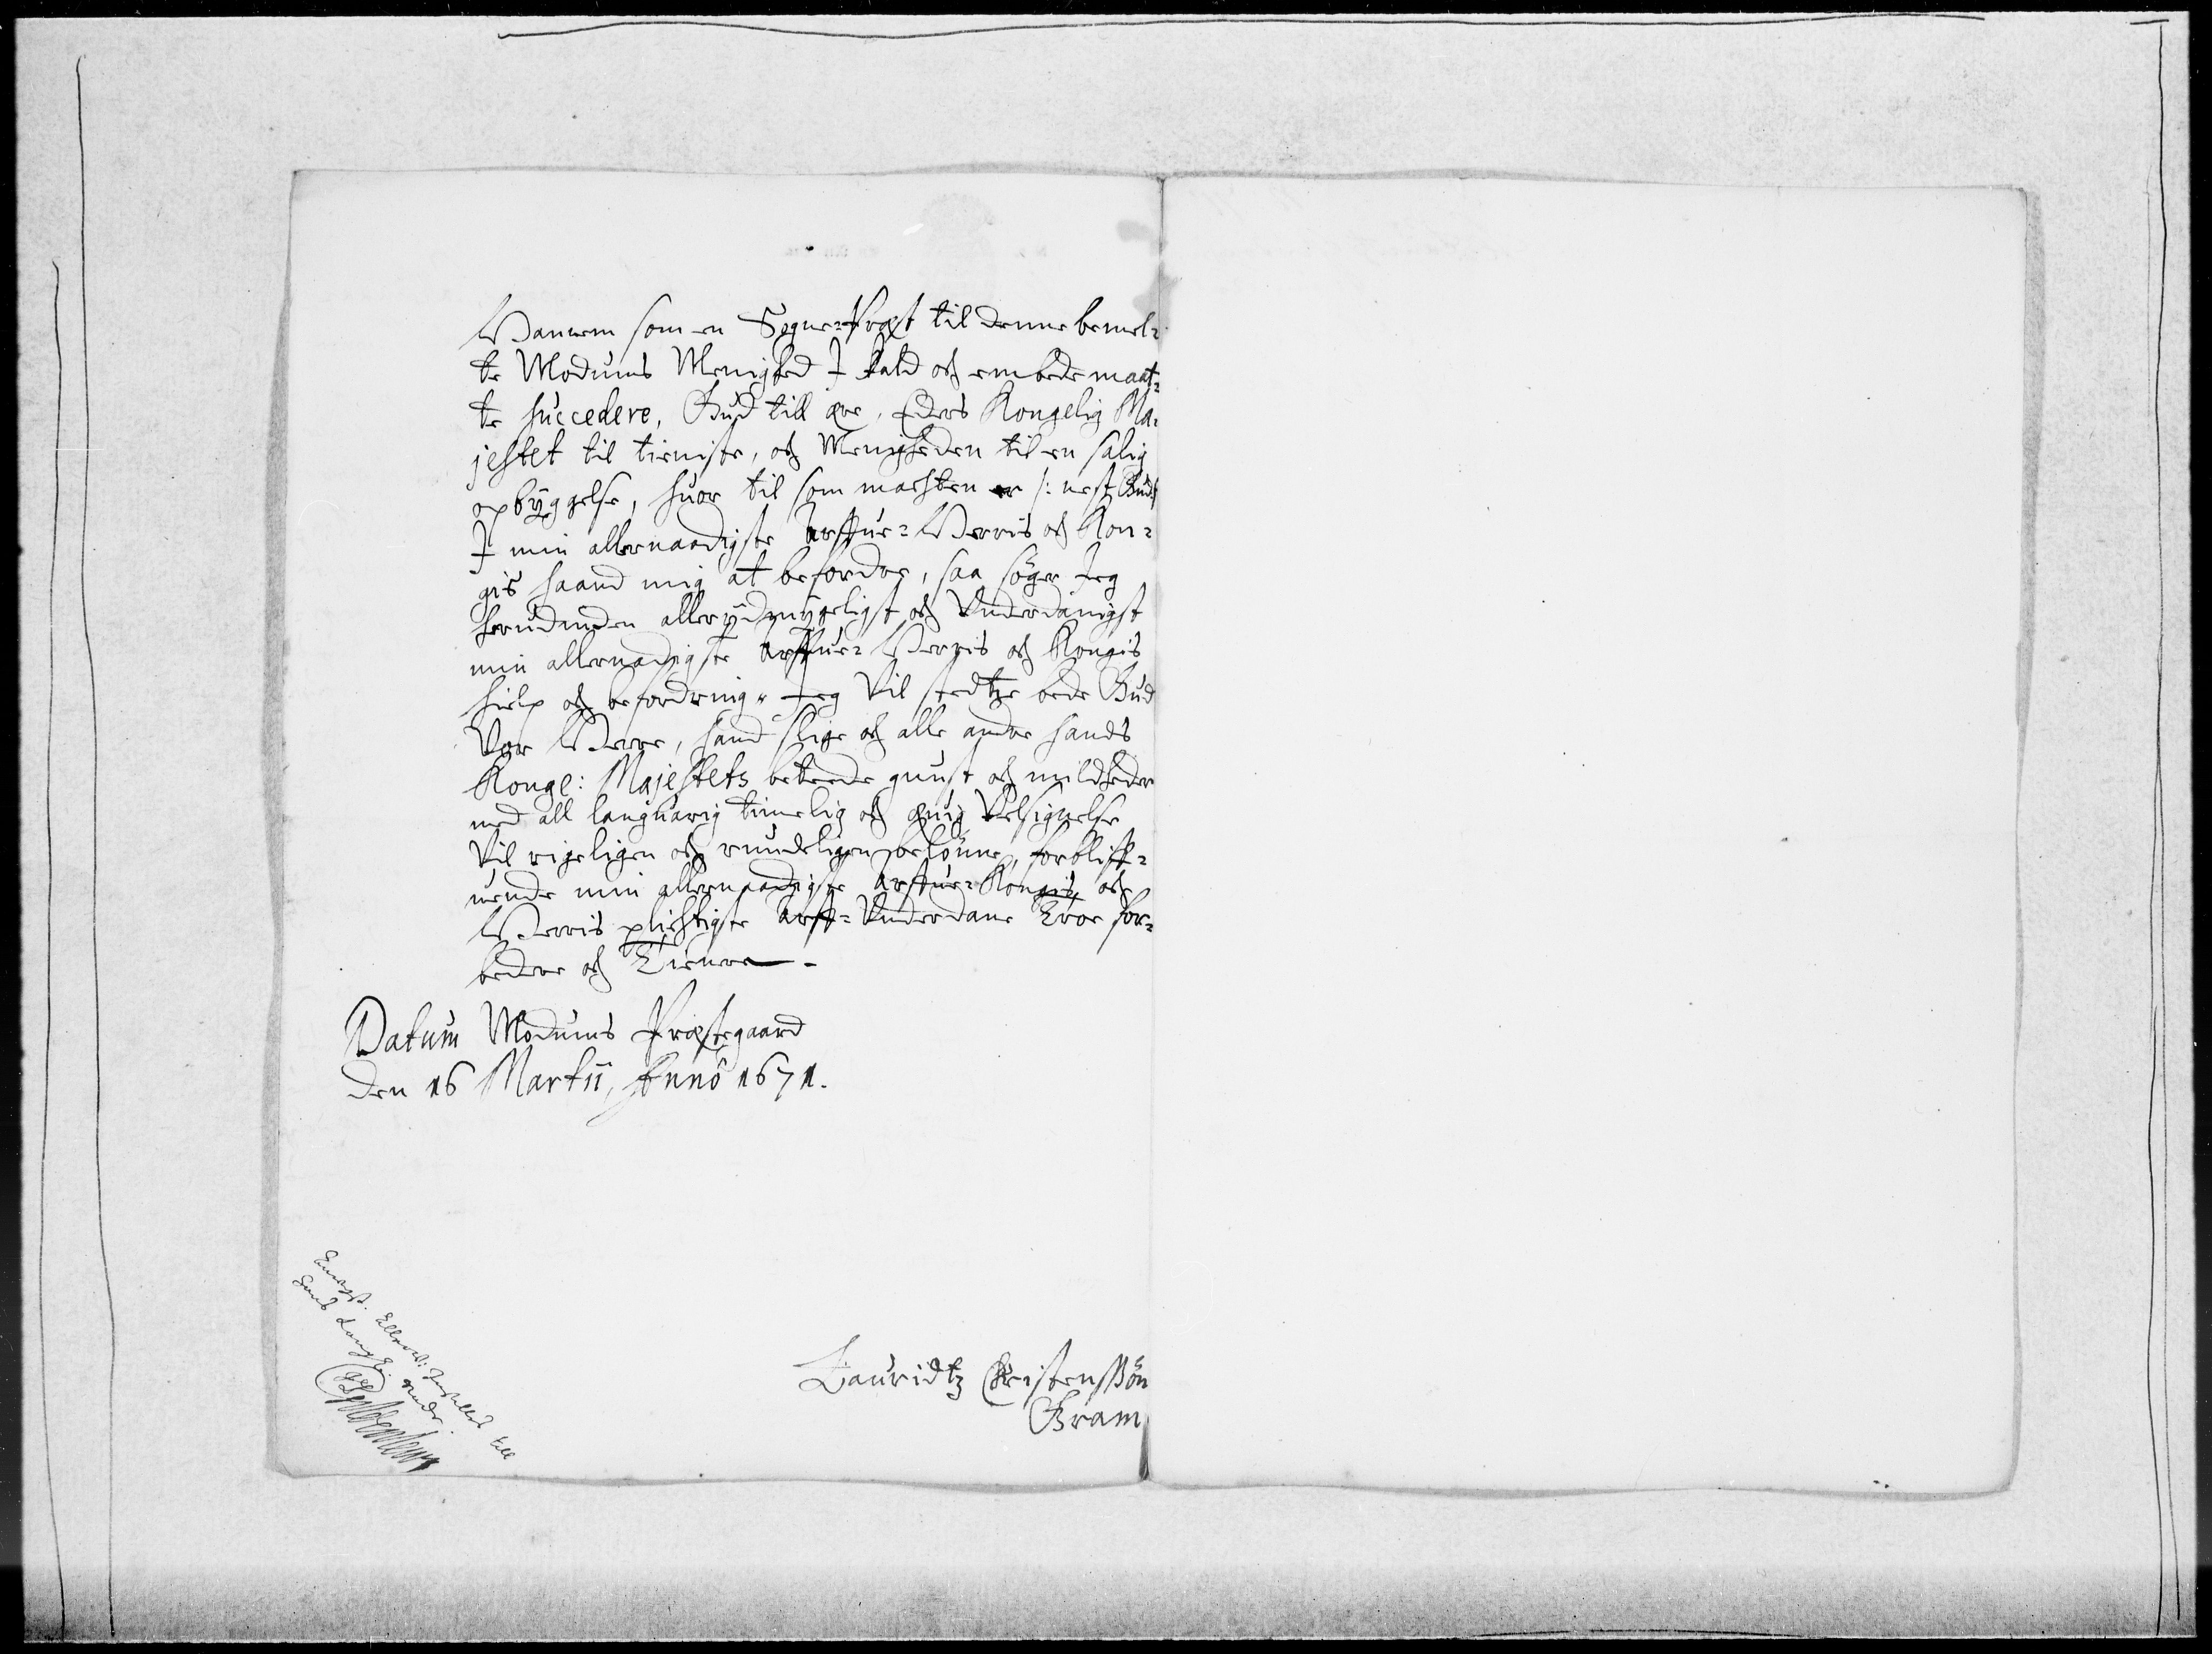 Hannem som en Sogne-Præst til denne bemel-
te Modums Menighed I kald och embede maat-
te succedere, Gud till ære, Eders Kongelig Ma-
jestet til tieniste, och Menigheden til en salig
opbyggelse, huor til som macten er /: nest Gud :/
I min allernaadigste Arffue-Herris och Kon-
gis haand mig at befordre, saa søger Jeg
herudanden allerydmygeligst och Underdanigst
min allernadigste Arffue-Herris och Kongis
hielp och befordring. Jeg Vil stedtze bede Gud
Vor Herre, hand slige och alle andre hands
Konge: Majestets beteede gunst och mildheder
med all languarig timelig och æuig Velsignelse
Vil rigeligen och rundeligen belønne, forbliff-
uende min allernaadigste Arffue-Kongis och
Herris plichtigste Arff-Underdane Troe for-
bedere och Tienere.
Datum Modums Præstegaard
den 16 Martii, Anno 1671.
Lauridtz Christensøn
Gram
till
hans